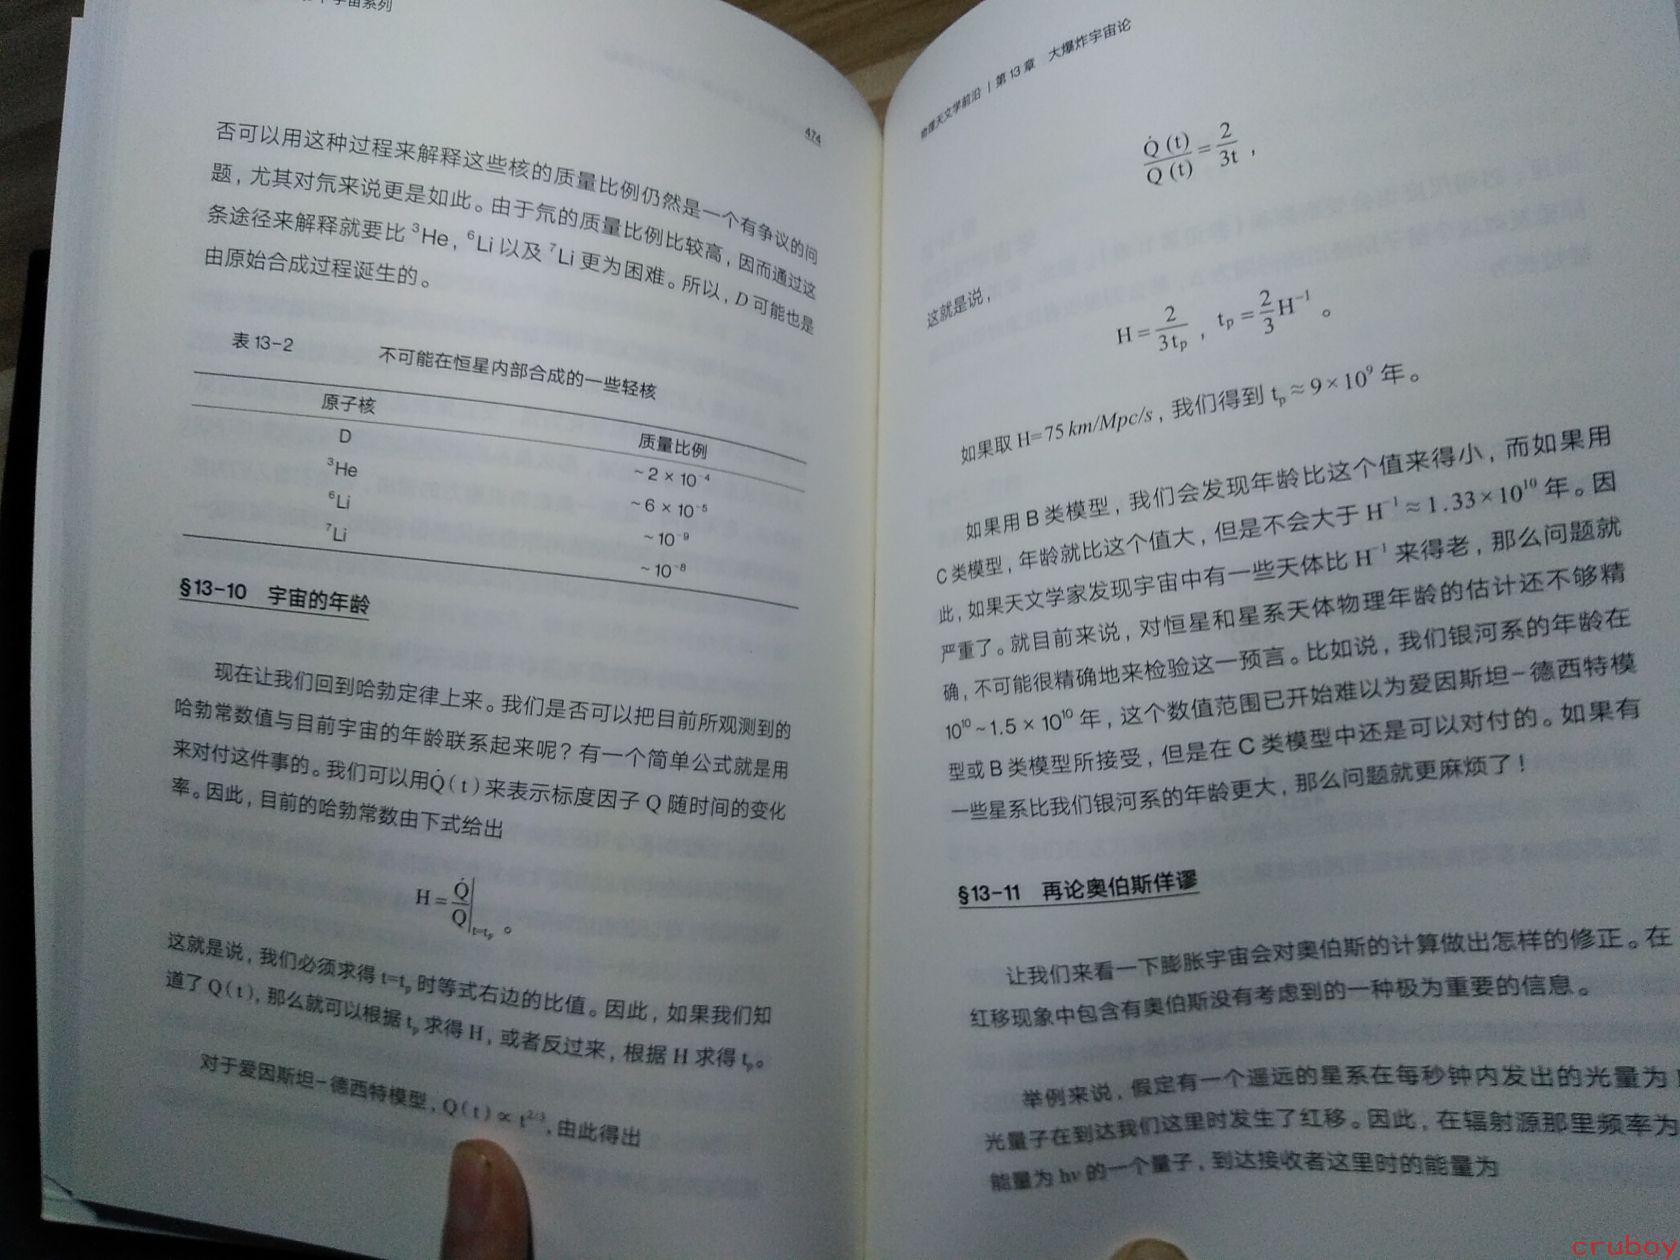 宇宙系列
474
否可以用这种过程来解释这些核的质量比例仍然是一个有争议的问
题，尤其对氘来说更是如此。由于氘的质量比例比较高，因而通过这
条途径来解释就要比 ³He，⁶Li 以及 ⁷Li 更为困难。所以，D 可能也是
由原始合成过程诞生的。
表 13-2 不可能在恒星内部合成的一些轻核
原子核 质量比例
D ~2×10⁻⁴
³He ~6×10⁻⁵
⁶Li ~10⁻⁹
⁷Li ~10⁻⁸
§13-10 宇宙的年龄
现在让我们回到哈勃定律上来。我们是否可以把目前所观测到的
哈勃常数值与目前宇宙的年龄联系起来呢？有一个简单公式就是用
来对付这件事的。我们可以用Q̇(t)来表示标度因子 Q 随时间的变化
率。因此，目前的哈勃常数由下式给出
H = Q̇/Q|t=tₚ 。
这就是说，我们必须求得 t=tₚ 时等式右边的比值。因此，如果我们知
道了 Q(t)，那么就可以根据 tₚ 求得 H，或者反过来，根据 H 求得 tₚ。
对于爱因斯坦-德西特模型，Q(t)∝t^2/3，由此得出
物理天文学前沿 | 第 13 章 大爆炸宇宙论
Q̇(t)/Q(t) = 2/3t ，
这就是说，
H = 2/3tₚ ，tₚ = 2/3 H⁻¹ 。
如果取 H=75 km/Mpc/s，我们得到 tₚ≈9×10⁹ 年。
如果用 B 类模型，我们会发现年龄比这个值来得小，而如果用
C 类模型，年龄就比这个值大，但是不会大于 H⁻¹≈1.33×10¹⁰ 年。因
此，如果天文学家发现宇宙中有一些天体比 H⁻¹ 来得老，那么问题就
严重了。就目前来说，对恒星和星系天体物理年龄的估计还不够精
确，不可能很精确地来检验这一预言。比如说，我们银河系的年龄在
10¹⁰~1.5×10¹⁰ 年，这个数值范围已开始难以为爱因斯坦-德西特模
型或 B 类模型所接受，但是在 C 类模型中还是可以对付的。如果有
一些星系比我们银河系的年龄更大，那么问题就更麻烦了！
§13-11 再论奥伯斯佯谬
让我们来看一下膨胀宇宙会对奥伯斯的计算做出怎样的修正。在
红移现象中包含有奥伯斯没有考虑到的一种极为重要的信息。
举例来说，假定有一个遥远的星系在每秒钟内发出的光量为
光量子在到达我们这里时发生了红移。因此，在辐射源那里频率为
能量为 hν 的一个量子，到达接收者这里时的能量为
cruboy